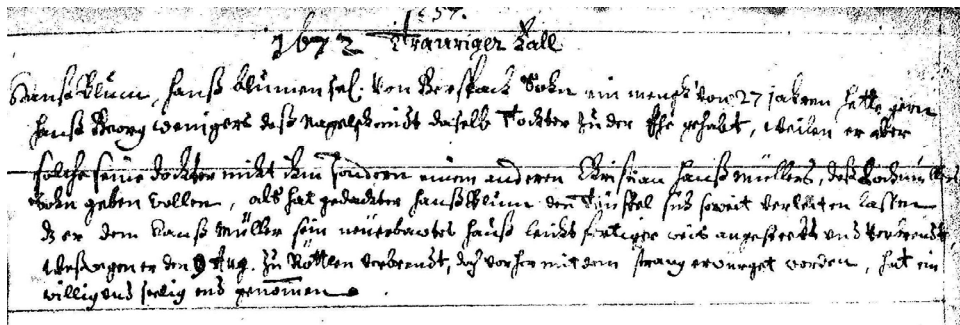 257.
1672 Trauriger Fall
Hanß Blum, Hanß Blumen sel. von Sohn ein mensch von 27 jahren hette gern
Hanß Georg wenigers deß Nagelschmidts daselb Tochter zu der Ehe gehabt, weilen er aber
solche seine dochter nicht ihm sondern einem anderen Hanß Müllers, deß
Sohn geben wollen, als hat gedachter Hanß Blum den Teuffel sich soweit verleiten lassen
dz er dem Hanß Müller sein neuerbawtes Hauß leichtfertiger weis angesteckt und verbrendt,
weswegen er den 9 Aug. zu Röttlen verbrendt, doch vorher mit dem strang erwürget worden, hat ein
willig und seelig end genomen.